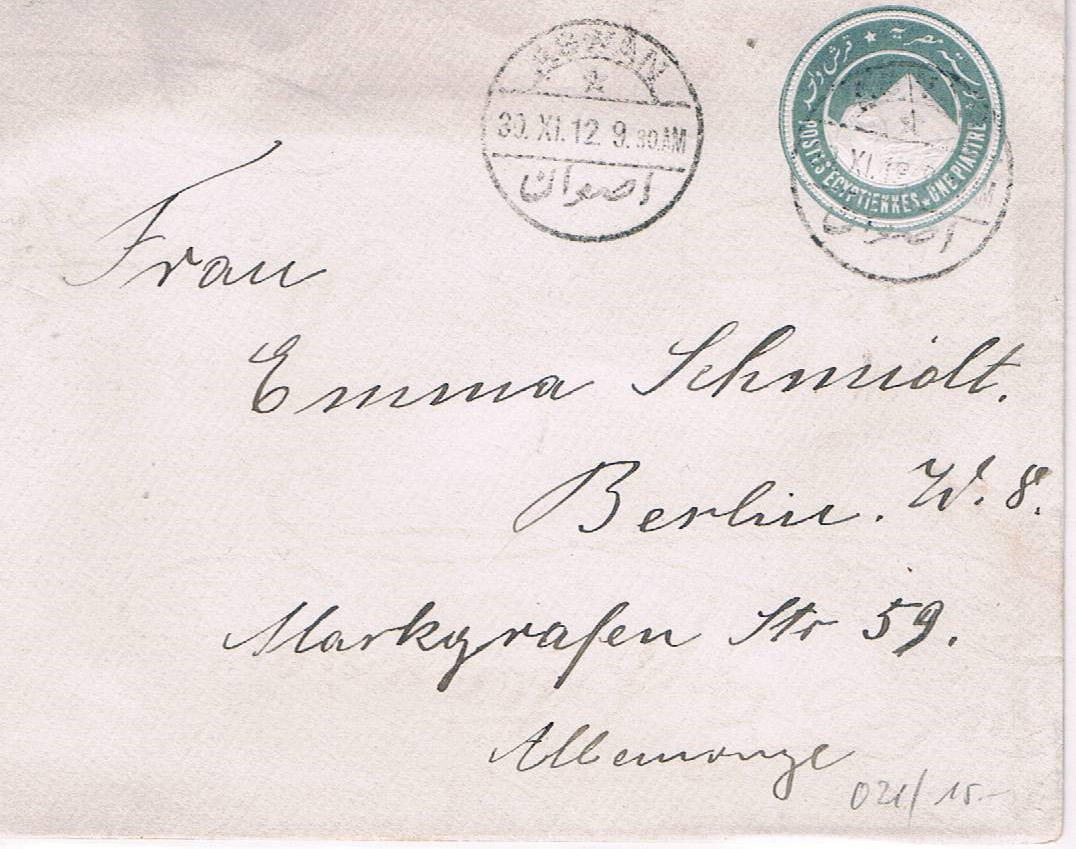 ASWAN
30. XI. 12 9.30.AM
اصوان
بوستة مصرية ★ قرش واحد
POSTES EGYPTIENNES ★ UNE PIASTRE
XI. 12
AM
اصوان
Frau
Emma Schmidt.
Berlin. W. 8.
Markgrafen Str 59.
Allemange
021/15.-